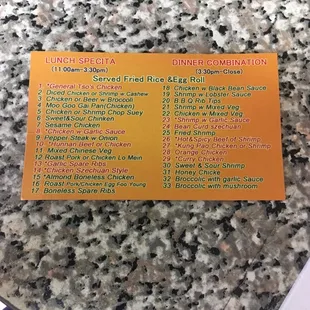 LUNCH SPECITA
(11:00am-3:30pm)
DINNER COMBINATION
(3:30pm-Close)
Served Fried Rice &Egg Roll
1 *General Tso's Chicken
2 Diced Chicken or Shrimp w Cashew
3 Chicken or Beer w Broccoli
4 Moo Goo Gai Pan(Chicken)
5 Chicken or Shrimp Chop Suey
6 Sweet&Sour Chinken
7 Sesame Chicken
8 *Chicken w Garlic Sauce
9 Pepper Steak w Onion
10 *Hunnan Beef or Chicken
11 Mixed Chinese Veg
12 Roast Pork or Chicken Lo Mein
13 *Garlic Spare Ribs
14 *Chicken Szechuan Style
15 *Almond Boneless Chicken
16 Roast Pork/Chicken Egg Foo Young
17 Boneless Spare Ribs
18 Chicken w Black Bean Sauce
19 Shrimp w Lobster Sauce
20 B.B.Q Rib Tips
21 Shrimp w Mixed Veg
22 Chicken w Mixed Veg
23 *Shrimp w Garlic Sauce
24 Bean Curd szechuan
25 Fried Shrimp
26 *Hot&Spicy Beef or Shrimp
27 *Kung Pao Chicken or Shrimp
28 Orange Chicken
29 *Curry Chicken
30 Sweet & Sour Shrimp
31 Honey Chicke
32 Broccolic with garlic Sauce
33 Broccolic with mushroom